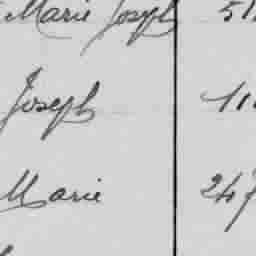 Marie Joseph
Joseph
Marie 247